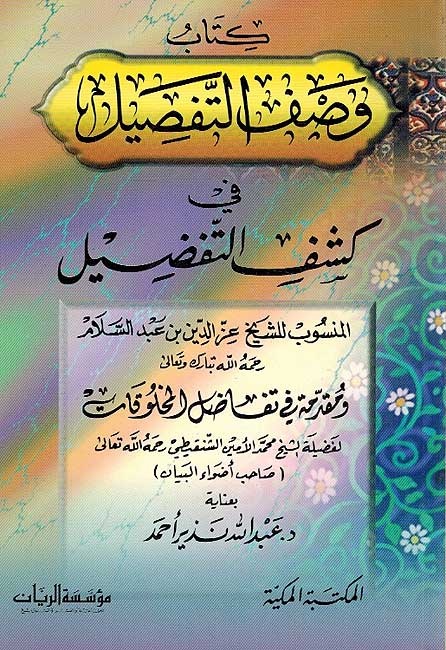 كتاب
وصف التفصيل
في
كشف التفضيل
المنسوب للشيخ عز الدين بن عبد السلام
رحمه الله تبارك وتعالى
ومقدمة في تفاضل المخلوقات
لفضيلة الشيخ محمد الأمين الشنقيطي رحمه الله تعالى
(صاحب أضواء البيان)
بعناية
د. عبد الله نذير أحمد
المكتبة المكية
مؤسسة الريان